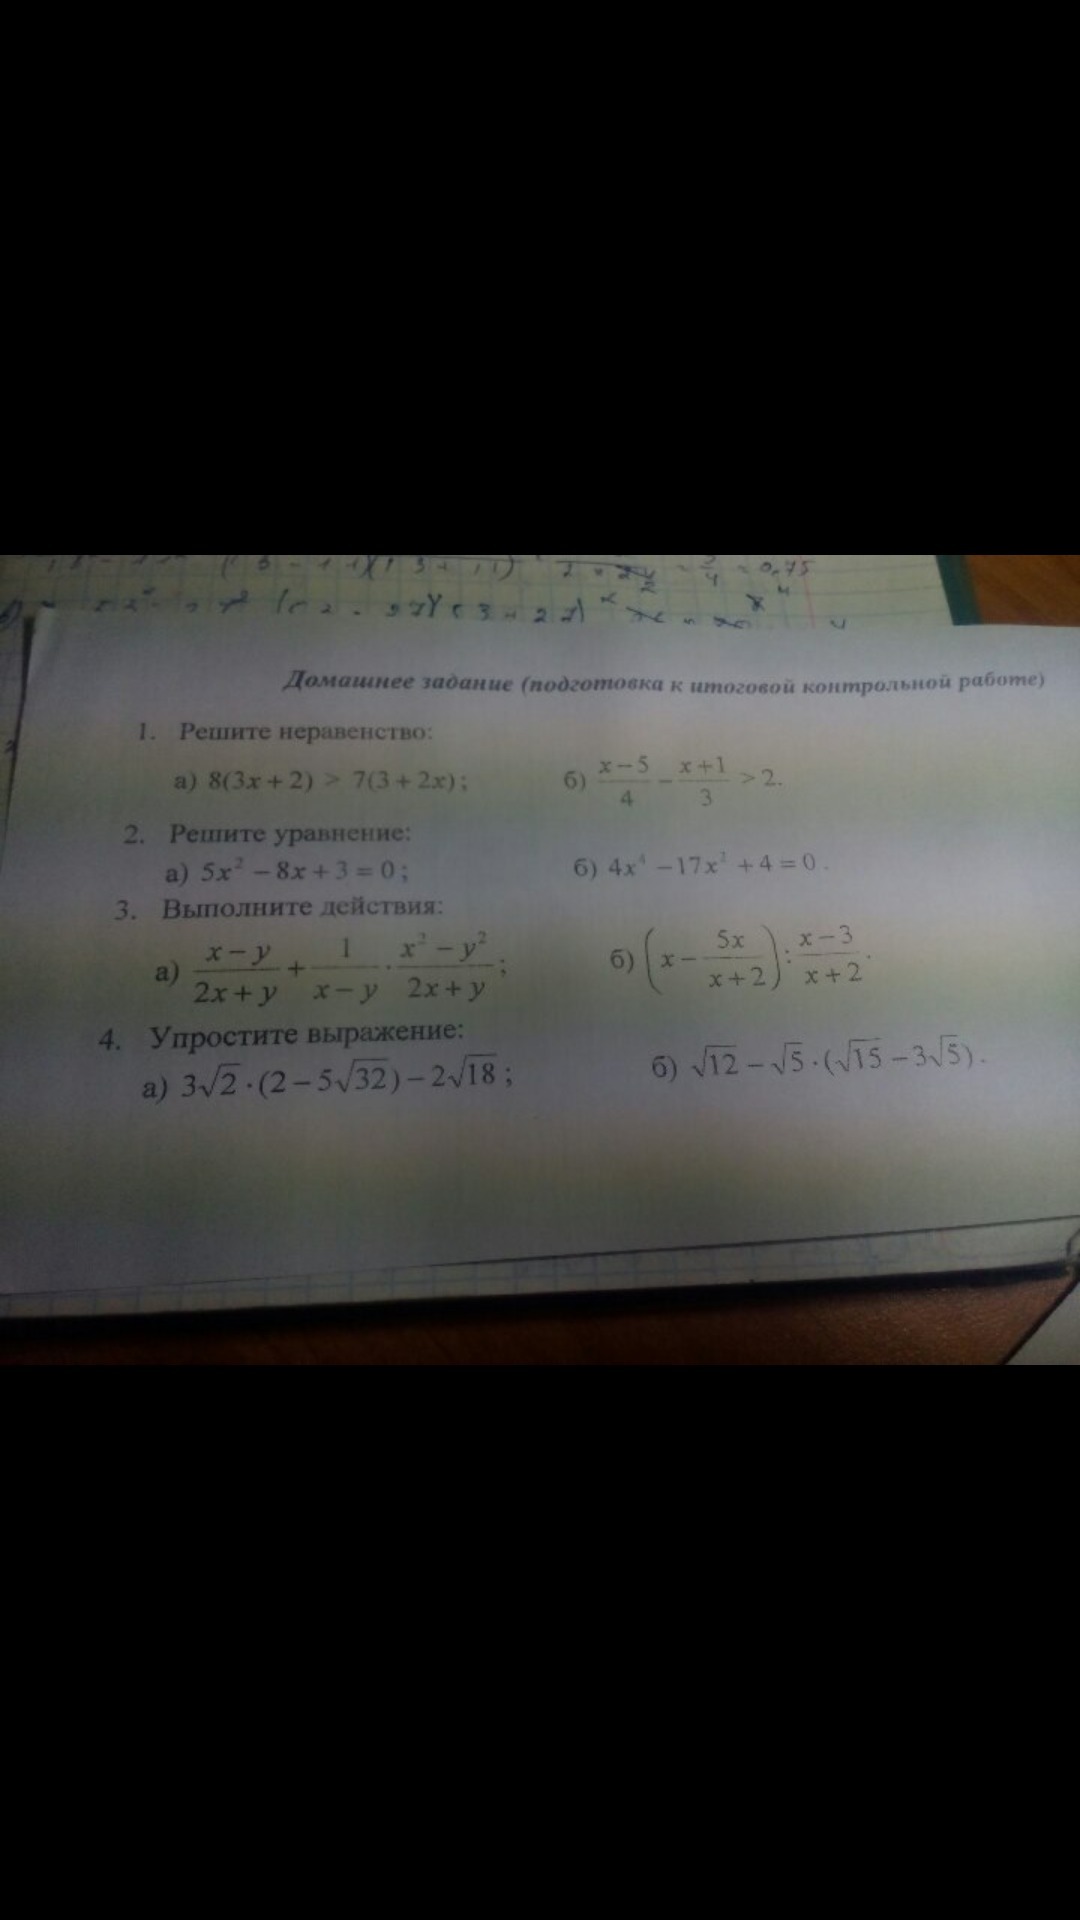 = 3/4 = 0,75
Домашнее задание (подготовка к итоговой контрольной работе)
1. Решите неравенство:
а) 8(3x + 2) > 7(3 + 2x); б) (x − 5)/4 − (x + 1)/3 > 2.
2. Решите уравнение:
а) 5x² − 8x + 3 = 0; б) 4x⁴ − 17x² + 4 = 0.
3. Выполните действия:
а) (x − y)/(2x + y) + 1/(x − y) · (x² − y²)/(2x + y); б) (x − 5x/(x + 2)) : (x − 3)/(x + 2).
4. Упростите выражение:
а) 3√2 · (2 − 5√32) − 2√18; б) √12 − √5 · (√15 − 3√5).